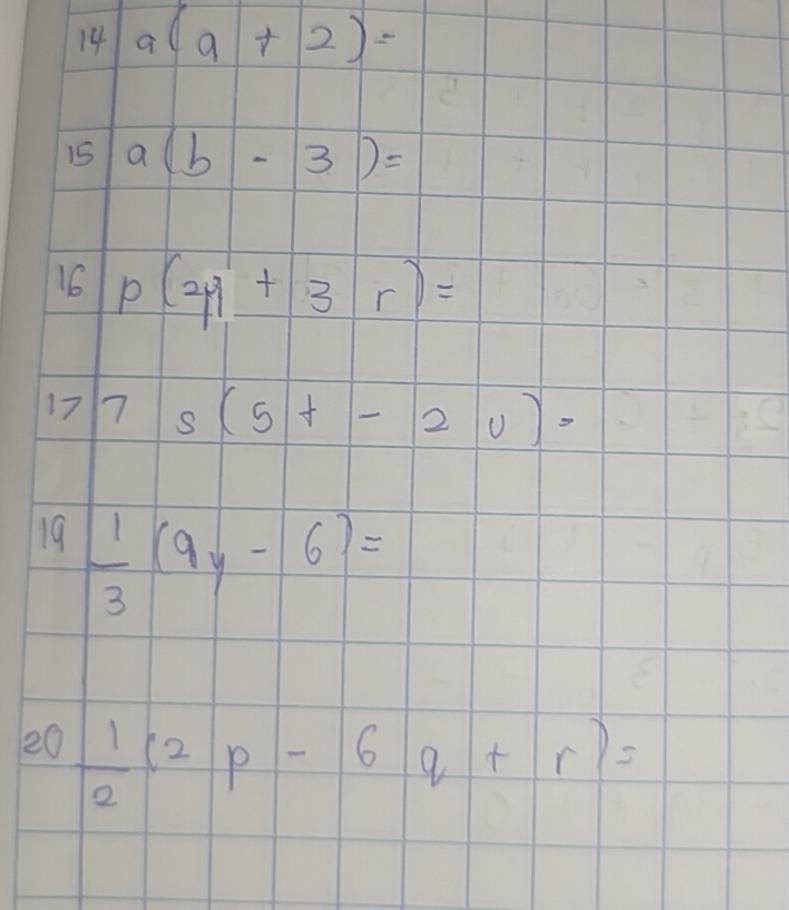 14 a(a + 2)=
15 a(b - 3)=
16 p(2q + 3r)=
17 7s(5t - 2u)=
19 1/3 (9y - 6)=
20 1/2 (2p - 6q + r)=